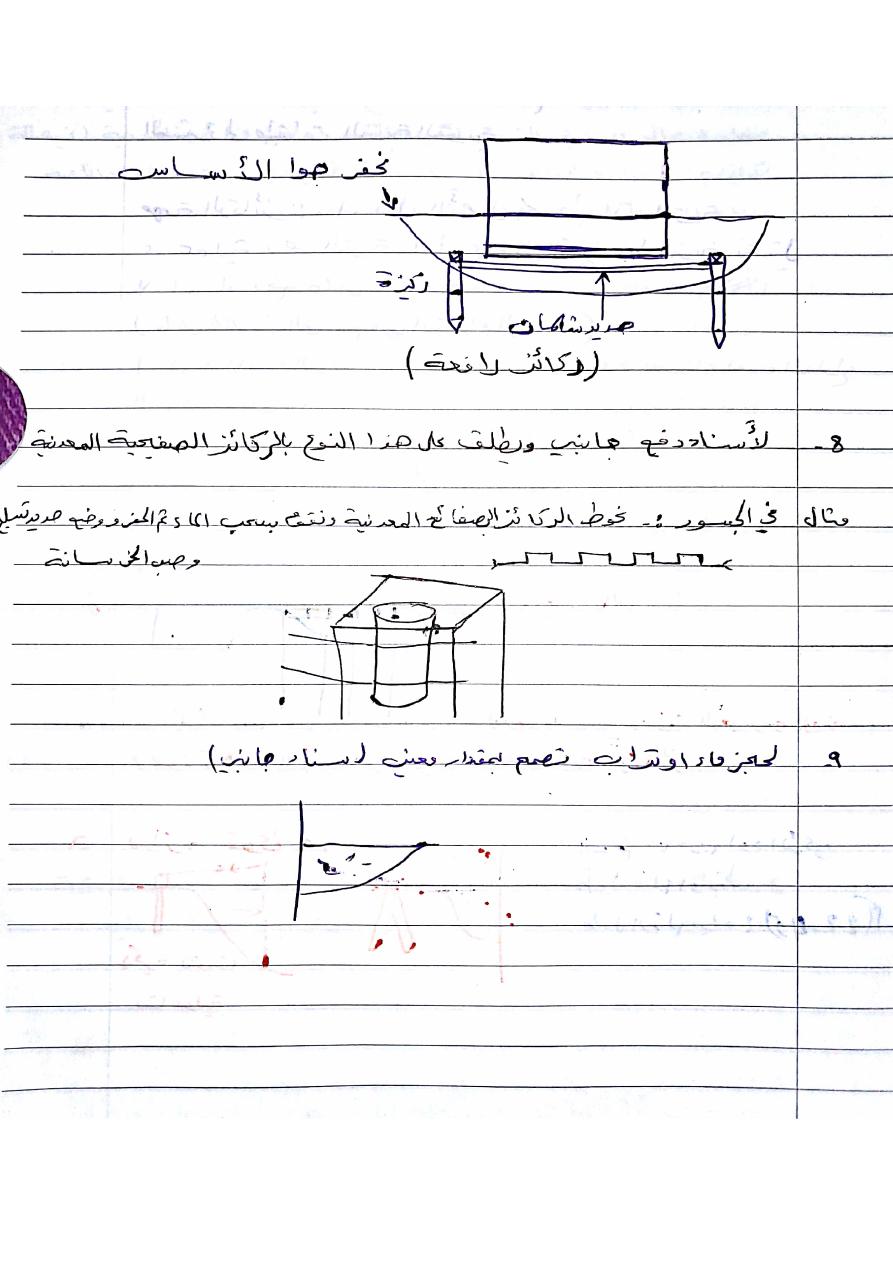 نحفر جوا الأساس
ركيزة
حديد شيلمان
(ركائز رافعة)
8- لأسناد دفع جانبي ويطلق على هذا النوع بالركائز الصفيحية المعدنية
مثال في الجسور :- نحوط الركائز بالصفائح المعدنية ونقوم بسحب الماء ثم الحفر ووضع حديد تسليح
وصب الخرسانة
9- لحجز ماء او تراب تصمم بمقدار معين (اسناد جانبي)